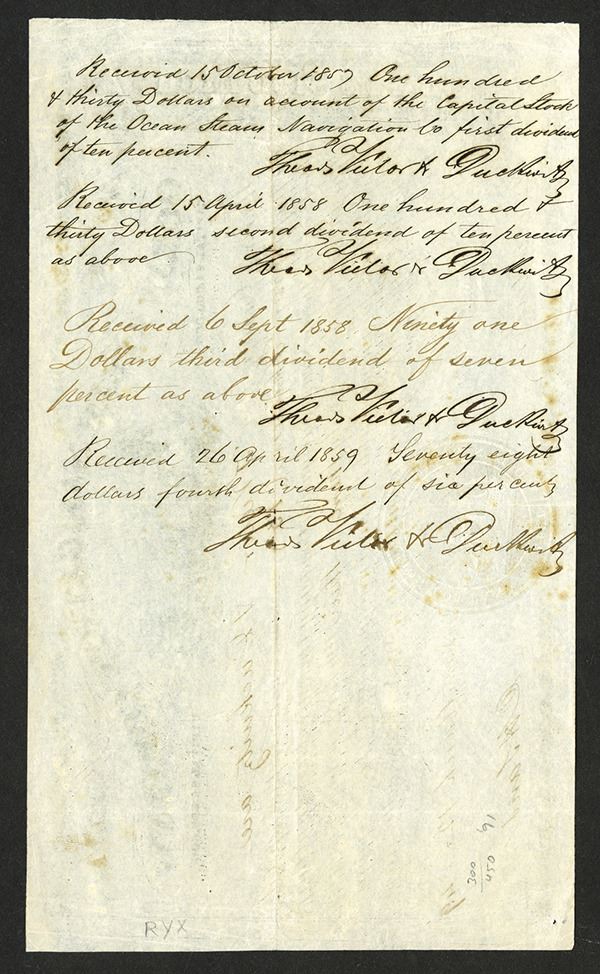 Received 15 October 1857 One hundred
& thirty Dollars on account of the Capital Stock
of the Ocean Steam Navigation Co first dividend
of ten percent.
Theods Victor & Duckwitz
Received 15 April 1858 One hundred &
thirty Dollars second dividend of ten percent
as above
Theods Victor & Duckwitz
Received 6 Sept 1858 Ninety one
Dollars third dividend of seven
percent as above
Theods Victor & Duckwitz
Received 26 April 1859 Seventy eight
dollars fourth dividend of six percent
Theods Victor & Duckwitz
300
450
91
RYX